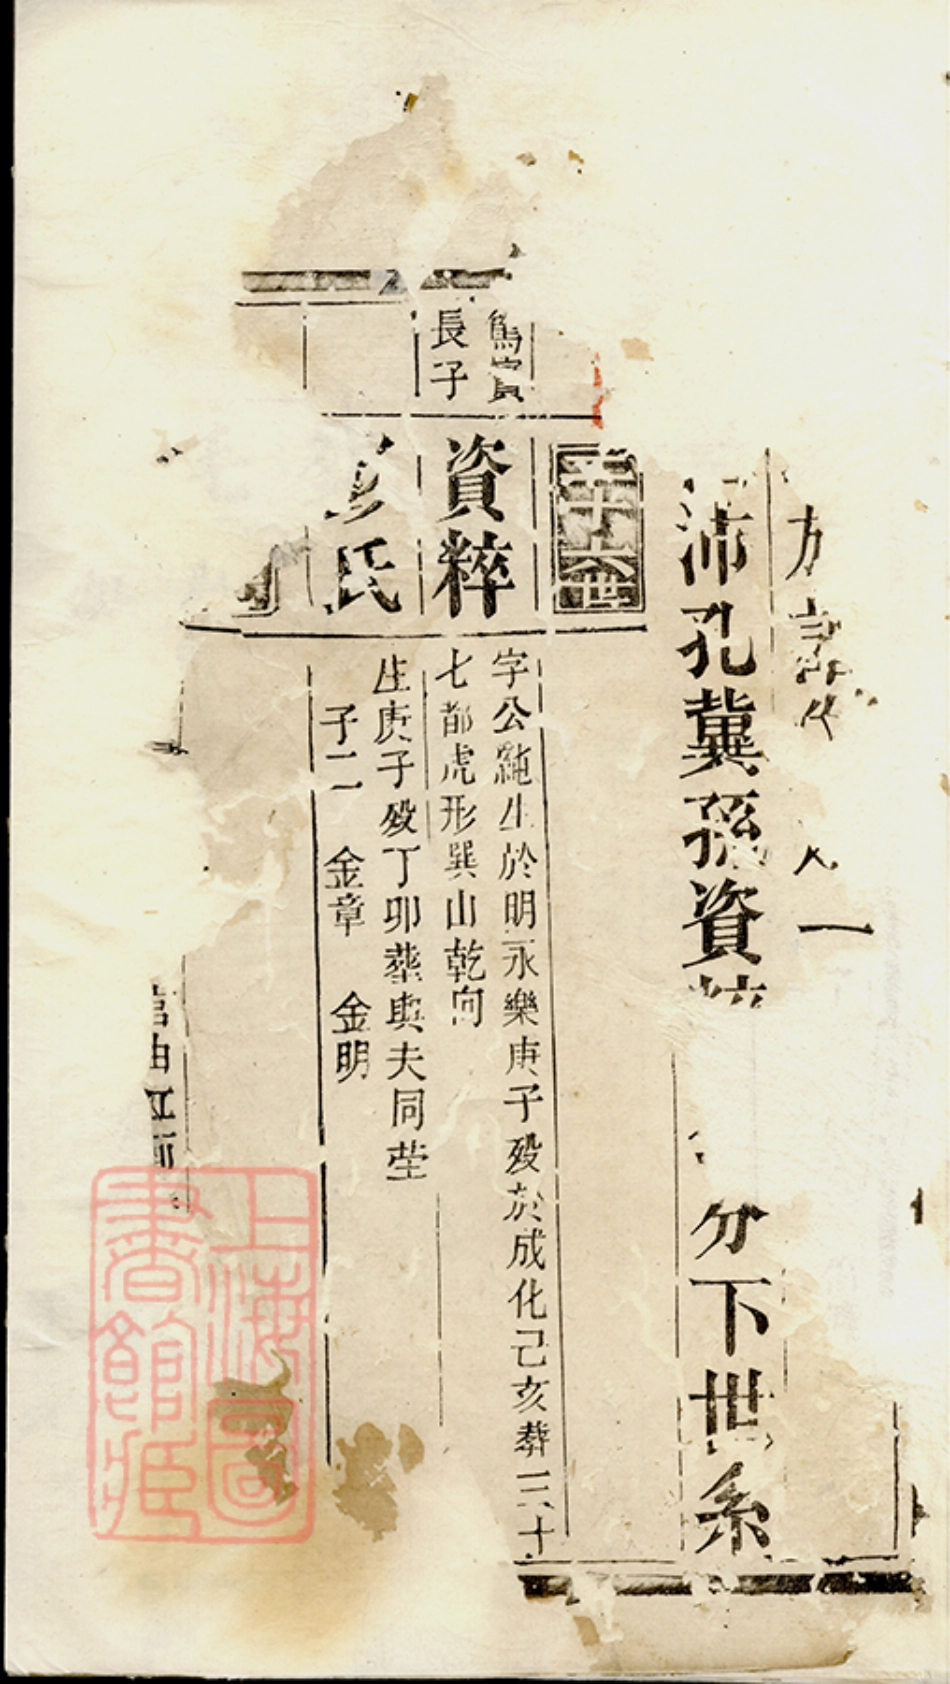 一
沛孔冀孫資
分下世系
五十六世
篤實
長子
資粹
字公純生於明永樂庚子殁於成化己亥葬三十
七都虎形巽山乾向
彭氏
生庚子殁丁卯葬與夫同塋
子二 金章 金明
上海圖
書館藏